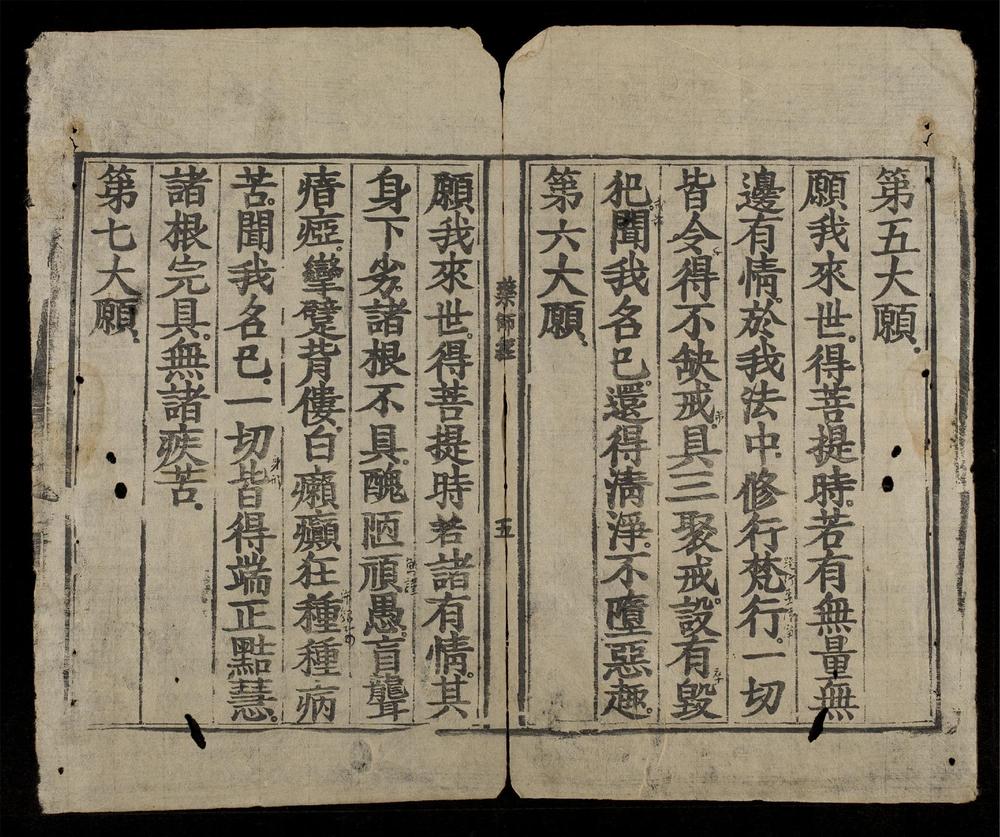 第五大願
願我來世得菩提時若有無量無
邊有情於我法中修行梵行一切
皆令得不缺戒具三聚戒設有毀
犯聞我名已還得清淨不墮惡趣
第六大願
藥師經
五
願我來世得菩提時若諸有情其
身下劣諸根不具醜陋頑愚盲聾
瘖瘂攣躄背僂白癩癲狂種種病
苦聞我名已一切皆得端正黠慧
諸根完具無諸疾苦
第七大願